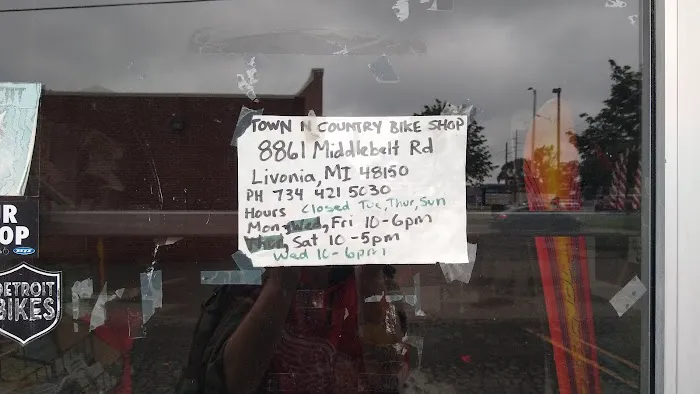 TOWN N COUNTRY BIKE SHOP
8861 Middlebelt Rd
Livonia, MI 48150
PH 734 421 5030
Hours Closed Tue, Thur, Sun
Mon, Wed, Fri 10-6pm
Thur, Sat 10-5pm
Wed 10-6pm
OP
DETROIT
BIKES